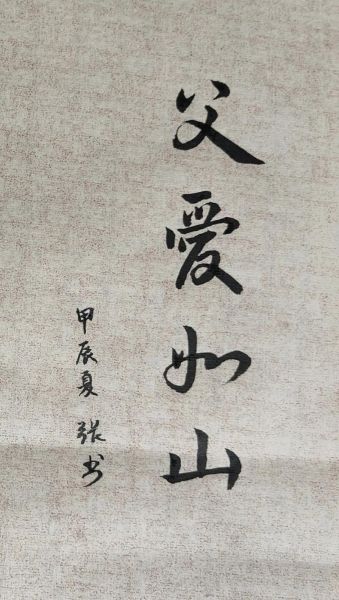 父愛如山
甲辰夏 张书